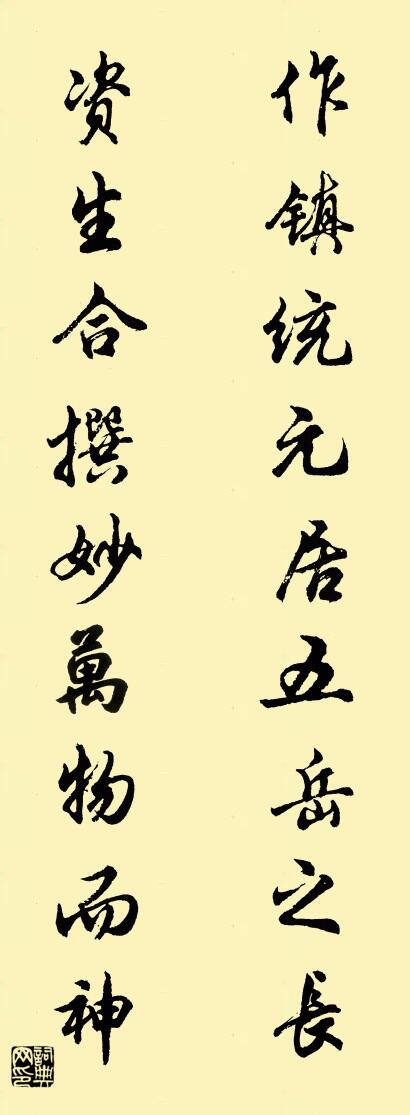 作镇统元居五岳之長
资生合撰妙萬物而神
詞典网印